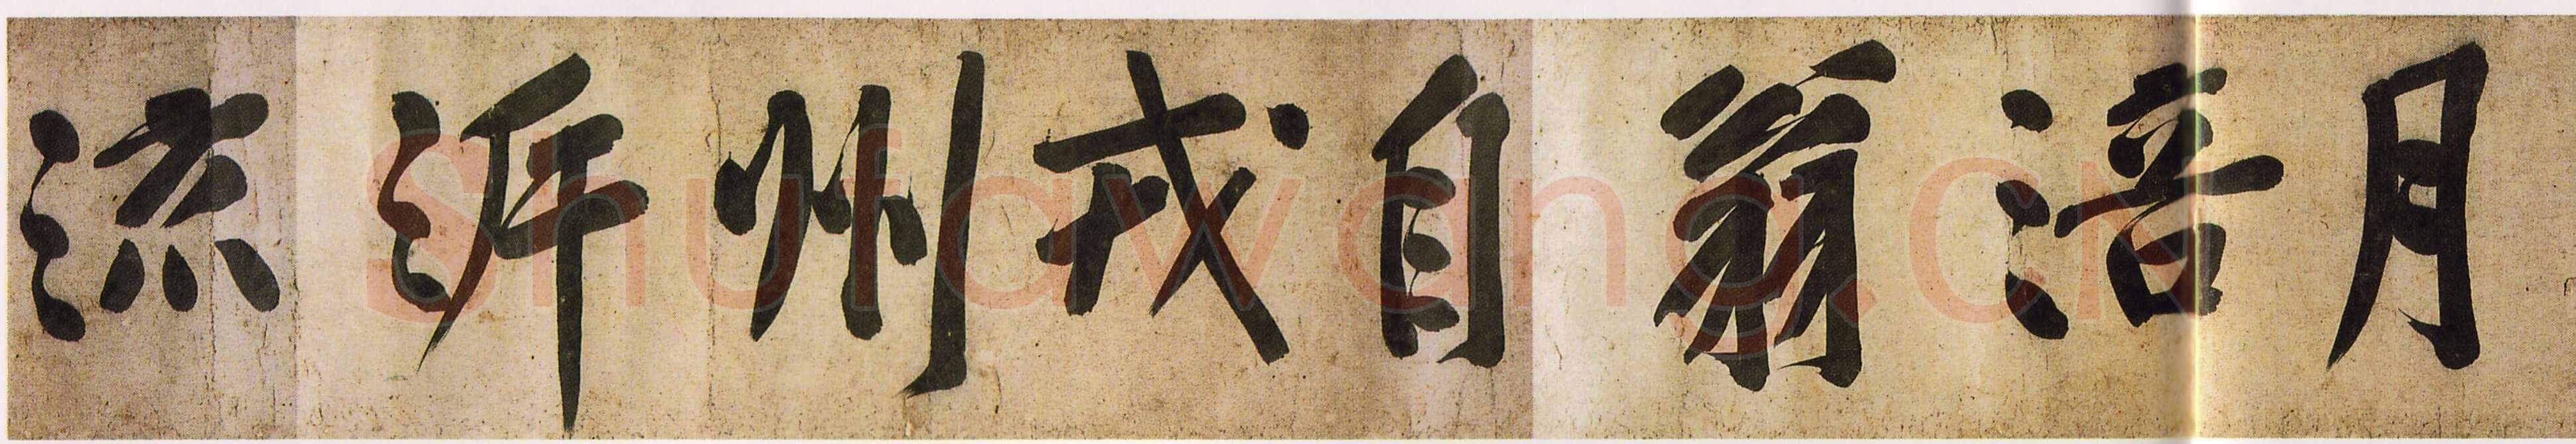 月涪翁自戎州泝流
Shufawang.CN